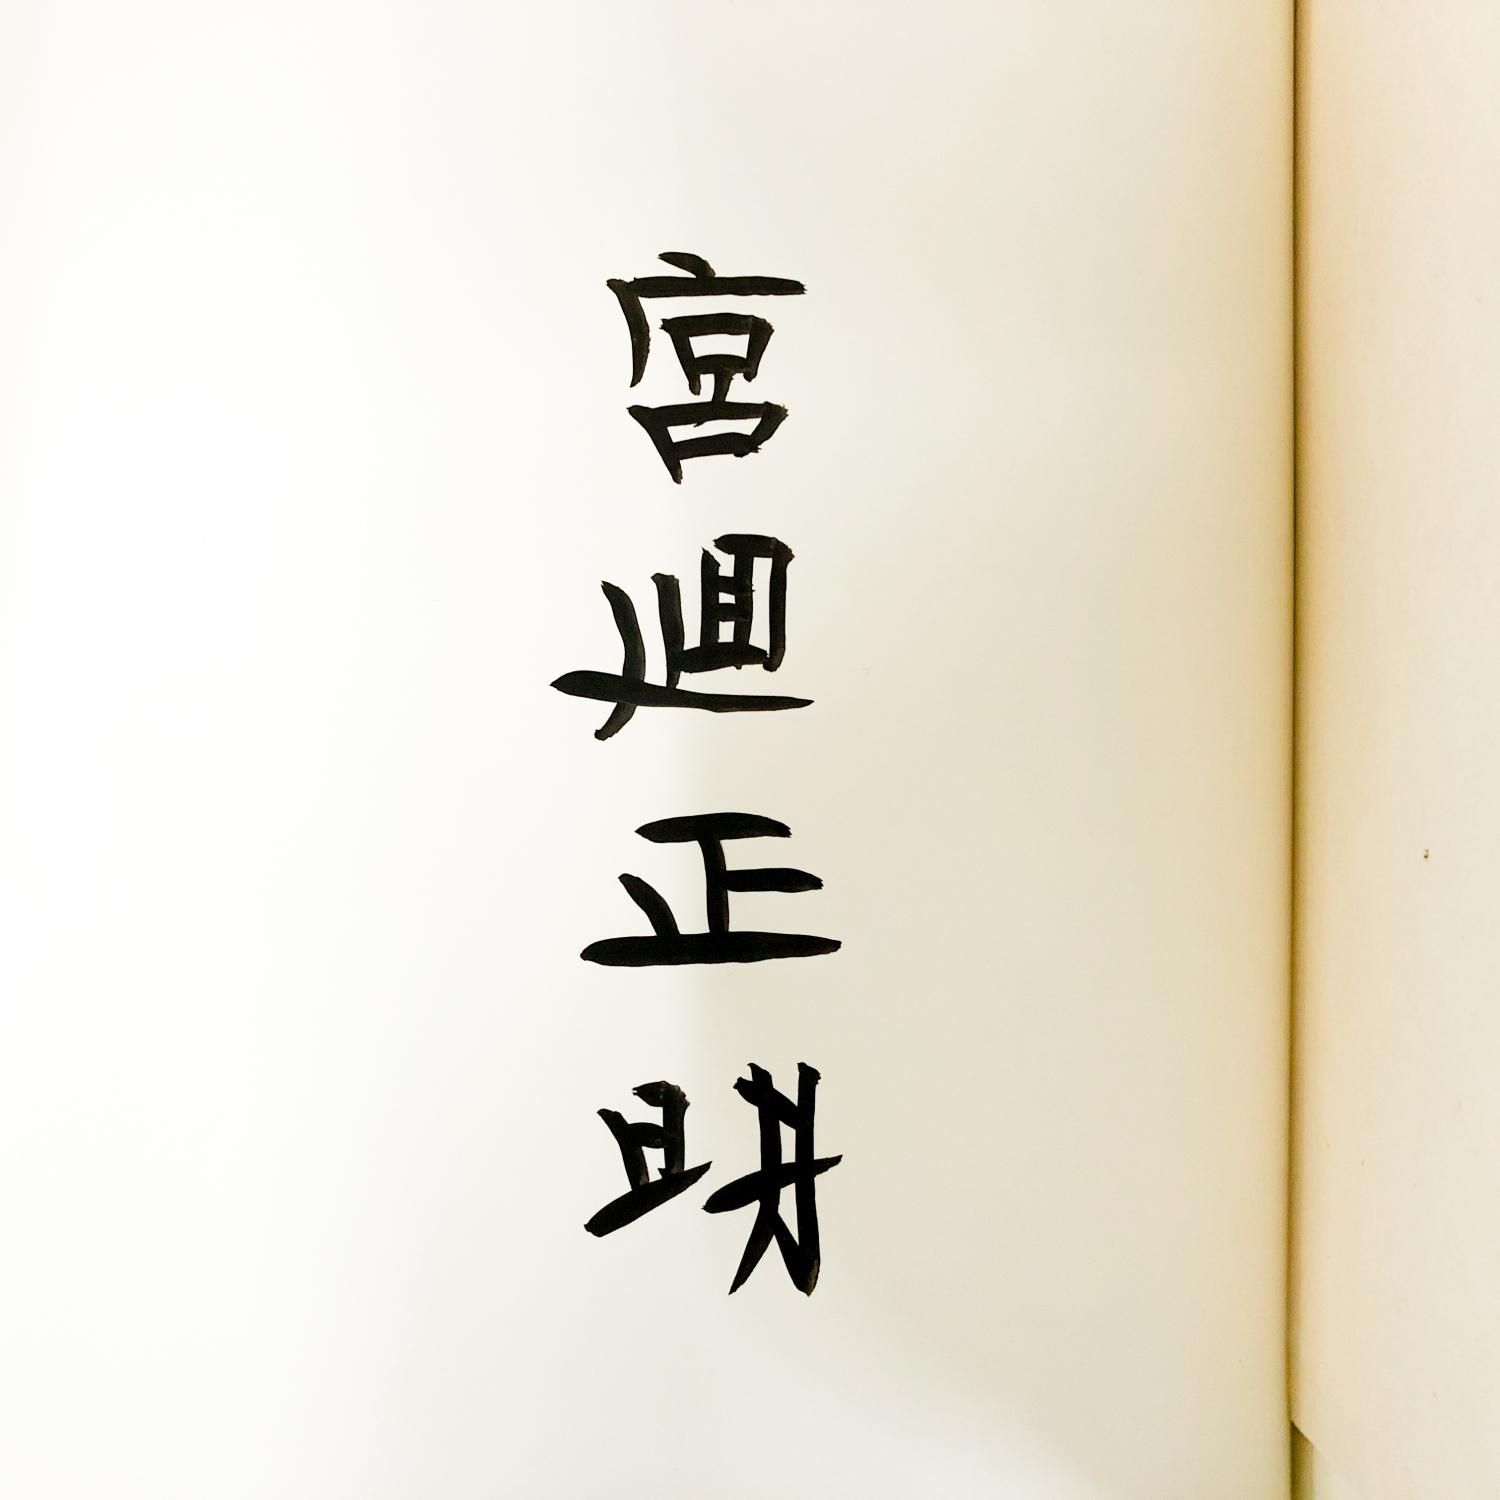 宮廻正明